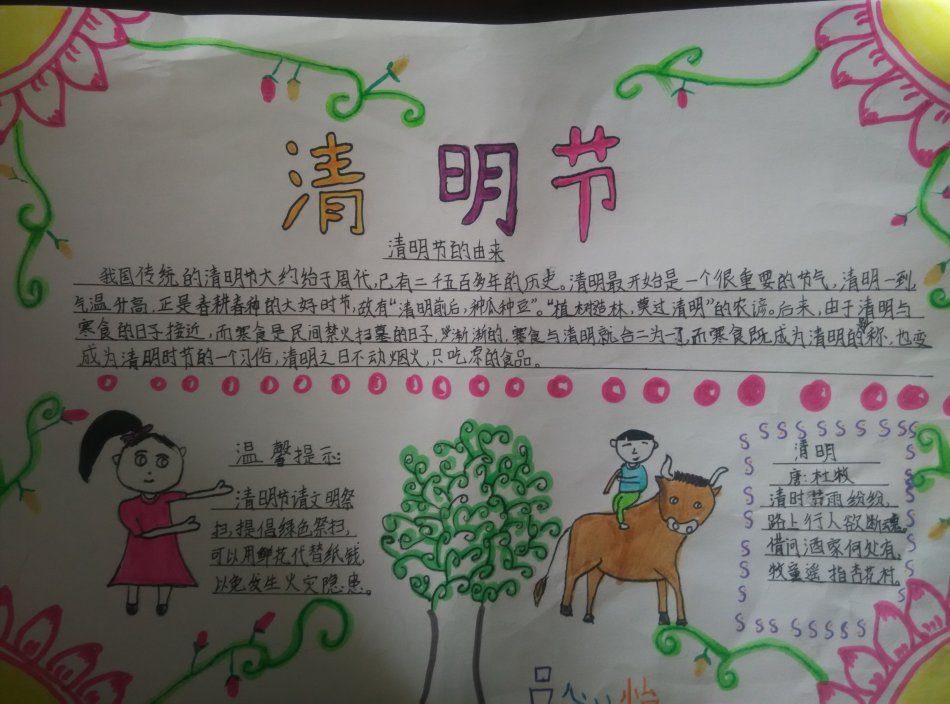 清明节
清明节的由来
我国传统的清明节大约始于周代,已有二千五百多年的历史。清明最开始是一个很重要的节气,清明一到
气温升高,正是春耕春种的大好时节,故有“清明前后,种瓜种豆”。“植树造林,莫过清明”的农谚。后来,由于清明与
寒食的日子接近,而寒食是民间禁火扫墓的日子,渐渐的,寒食与清明就合二为一了,而寒食既成为清明的别称,也变
成为清明时节的一个习俗,清明之日不动烟火,只吃凉的食品。
温馨提示:
清明节请文明祭
扫,提倡绿色祭扫,
可以用鲜花代替纸钱,
以免发生火灾隐患。
清明
唐:杜牧
清时节雨纷纷,
路上行人欲断魂。
借问酒家何处有,
牧童遥指杏花村。